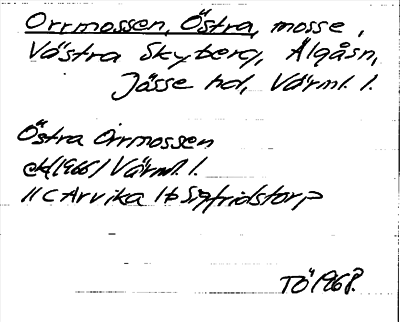 Orrmossen, Östra, mosse,
Västra Skyberg, Älgåsn,
Jösse hd, Värml. l.
Östra Orrmossen
ek (1966) Värml. l.
11 C Arvika 1 b Sigfridstorp
TÖ 1968.